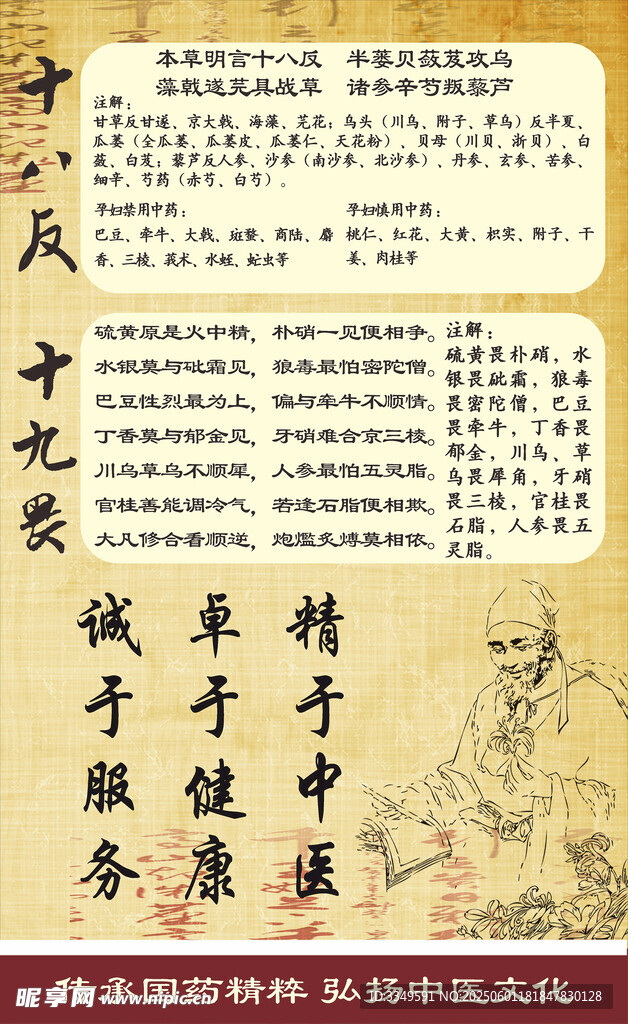 十八反
本草明言十八反　半蒌贝蔹芨攻乌
藻戟遂芫具战草　诸参辛芍叛藜芦
注解：
甘草反甘遂、京大戟、海藻、芫花；乌头（川乌、附子、草乌）反半夏、
瓜蒌（全瓜蒌、瓜蒌皮、瓜蒌仁、天花粉）、贝母（川贝、浙贝）、白
蔹、白芨；藜芦反人参、沙参（南沙参、北沙参）、丹参、玄参、苦参、
细辛、芍药（赤芍、白芍）。
孕妇禁用中药：
巴豆、牵牛、大戟、斑蝥、商陆、麝
香、三棱、莪术、水蛭、虻虫等
孕妇慎用中药：
桃仁、红花、大黄、枳实、附子、干
姜、肉桂等
十九畏
硫黄原是火中精，朴硝一见便相争。
水银莫与砒霜见，狼毒最怕密陀僧。
巴豆性烈最为上，偏与牵牛不顺情。
丁香莫与郁金见，牙硝难合京三棱。
川乌草乌不顺犀，人参最怕五灵脂。
官桂善能调冷气，若逢石脂便相欺。
大凡修合看顺逆，炮爁炙煿莫相依。
注解：
硫黄畏朴硝，水
银畏砒霜，狼毒
畏密陀僧，巴豆
畏牵牛，丁香畏
郁金，川乌、草
乌畏犀角，牙硝
畏三棱，官桂畏
石脂，人参畏五
灵脂。
精于中医
卓于健康
诚于服务
传承国药精粹 弘扬中医文化
昵享网 www.nipic.cn
ID:3349591 NO:20250601181847830128